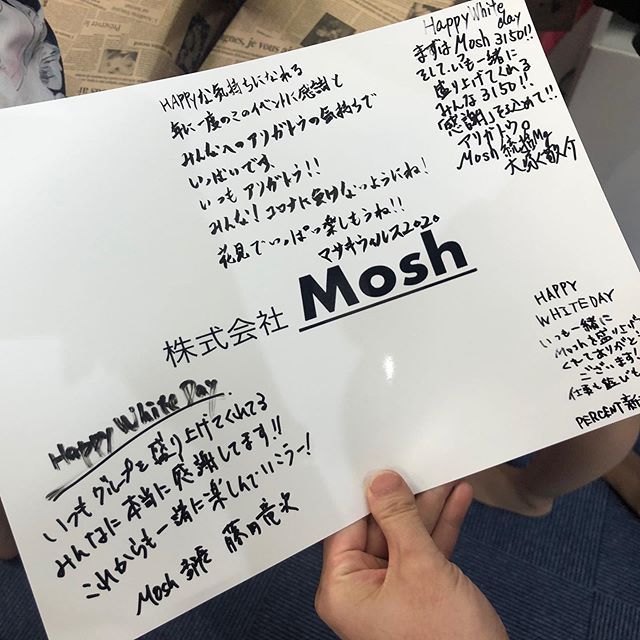 HAPPYな気持ちになれる
年に一度のこのイベントに感謝と
みんなへのアリガトウの気持ちで
いっぱいです。
いつもアリガトウ!!
みんな!コロナに負けないようにね!
花見でいっぱつ楽しもうね!!
マサキウィルス2020
Happy White
day
まずはMosh 3150!!
そして、いつも一緒に
盛り上げてくれる
みんな3150!!
「感謝」を込めて!!
アリガトウ。
Mosh 統括Mg
株式会社 Mosh
HAPPY
WHITEDAY
いつも一緒に
Moshを盛り上げ
くれてありがとう
ございます!
仕事も遊びも
PERCENT
Happy White Day
いつもグループを盛り上げてくれてる
みんなに本当に感謝してます!!
これからも一緒に楽しんでいこうー!
Mosh 藤田竜次